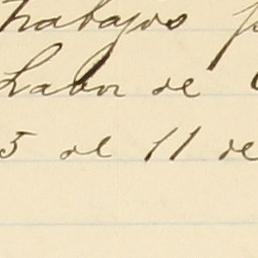 Trabajos
Labor de
5 al 11 de